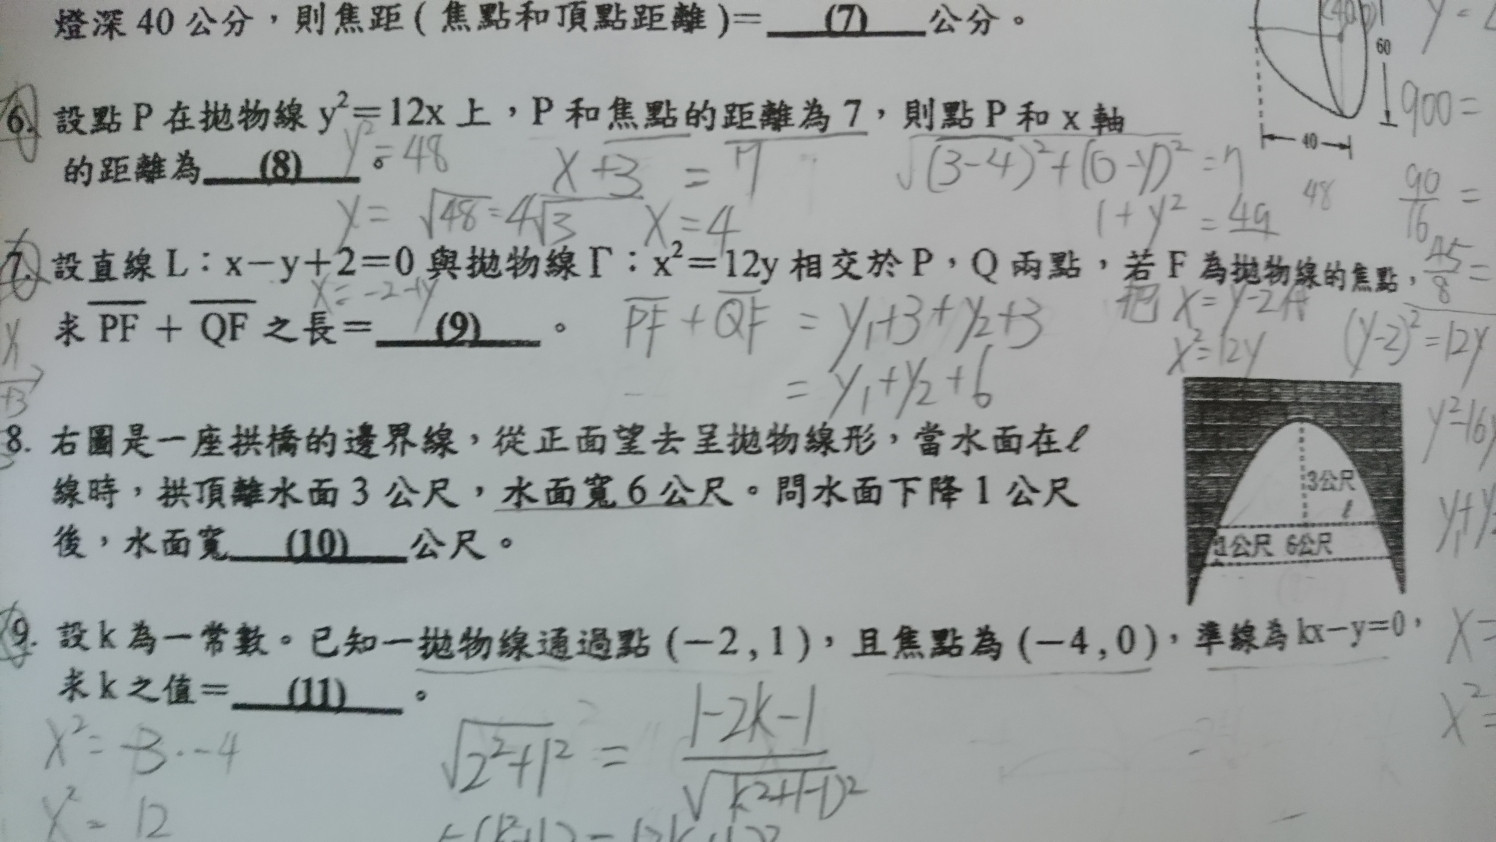 燈深 40 公分，則焦距 ( 焦點和頂點距離 )= (7) 公分。
60
40
900=
6. 設點 P 在拋物線 y²=12x 上，P 和焦點的距離為 7，則點 P 和 x 軸
的距離為 (8) 。
y²=48
x+3 = 7
√(3-4)²+(0-y)² = 7
y= √48=4√3
x=4
1+y² = 49
48
90/16 =
7. 設直線 L：x−y+2=0 與拋物線 Γ：x²=12y 相交於 P，Q 兩點，若 F 為拋物線的焦點，
45/8 =
求 PF + QF 之長= (9) 。
x=-2+y
PF + QF = y₁+3+y₂+3
= y₁+y₂+6
把 x=y-2
x²=12y
(y-2)²=12y
+3
y²-16y
8. 右圖是一座拱橋的邊界線，從正面望去呈拋物線形，當水面在ℓ
線時，拱頂離水面 3 公尺，水面寬 6 公尺。問水面下降 1 公尺
後，水面寬 (10) 公尺。
3公尺
ℓ
1公尺 6公尺
9. 設 k 為一常數。已知一拋物線通過點 (−2 , 1)，且焦點為 (−4 , 0)，準線為 kx−y=0，
求 k 之值= (11) 。
x=
x²=
x²= -3·-4
x²= 12
√2²+1² = |-2k-1| / √k²+(-1)²